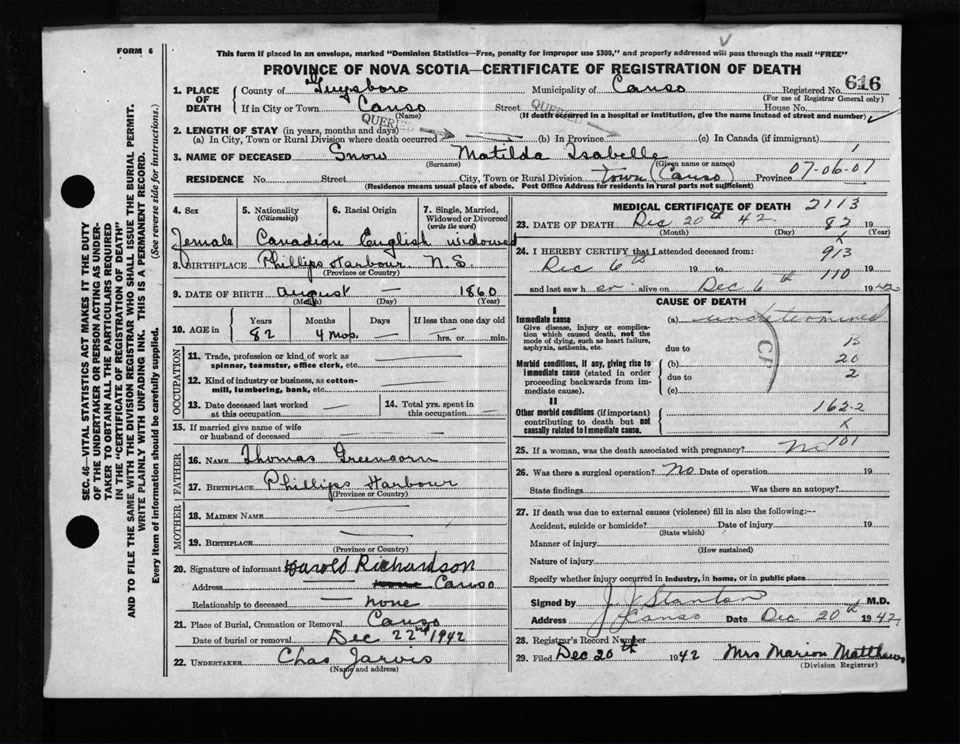 FORM 6
This form if placed in an envelope, marked "Dominion Statistics—Free, penalty for improper use $300," and properly addressed will pass through the mail "FREE"
PROVINCE OF NOVA SCOTIA—CERTIFICATE OF REGISTRATION OF DEATH
616
1. PLACE OF DEATH County of Guysboro Municipality of Canso Registered No.
(For use of Registrar General only)
If in City or Town Canso Street House No.
(Name) (If death occurred in a hospital or institution, give the name instead of street and number)
QUERIED QUERIED
2. LENGTH OF STAY (in years, months and days)
(a) In City, Town or Rural Division where death occurred (b) In Province (c) In Canada (if immigrant)
3. NAME OF DECEASED Snow Matilda Isabelle 1
(Surname) (Given name or names)
RESIDENCE No. Street City, Town or Rural Division Town (Canso) Province 07-06-01
(Residence means usual place of abode. Post Office Address for residents in rural parts not sufficient)
4. Sex 5. Nationality (Citizenship) 6. Racial Origin 7. Single, Married, Widowed or Divorced (write the word)
Female Canadian English widowed
8. BIRTHPLACE Phillips Harbour N.S.
(Province or Country)
9. DATE OF BIRTH August — 1860
(Month) (Day) (Year)
10. AGE in Years Months Days If less than one day old
82 4 mos. — hrs. or min.
OCCUPATION
11. Trade, profession or kind of work as spinner, teamster, office clerk, etc.
12. Kind of industry or business, as cotton-mill, lumbering, bank, etc.
13. Date deceased last worked at this occupation 14. Total yrs. spent in this occupation
15. If married give name of wife or husband of deceased
FATHER
16. NAME Thomas Greencorn
17. BIRTHPLACE Phillips Harbour
(Province or Country)
MOTHER
18. MAIDEN NAME
19. BIRTHPLACE
(Province or Country)
20. Signature of informant Harold Richardson
Address Canso
Relationship to deceased none
21. Place of Burial, Cremation or Removal Canso
Date of burial or removal Dec 22nd 1942
22. UNDERTAKER Chas Jarvis
(Name and address)
MEDICAL CERTIFICATE OF DEATH 2113
23. DATE OF DEATH Dec 20th 42 82 19
(Month) (Day) (Year)
24. I HEREBY CERTIFY that I attended deceased from: 913
Dec 6th 19 to 19
110
and last saw h er alive on Dec 6th 1942
CAUSE OF DEATH
I
Immediate cause (a) undetermined
Give disease, injury or complication which caused death, not the mode of dying, such as heart failure, asphyxia, asthenia, etc.
due to 13
Morbid conditions, if any, giving rise to immediate cause (stated in order proceeding backwards from immediate cause). (b) 20
due to 2
(c)
II
Other morbid conditions (if important) contributing to death but not causally related to immediate cause.
162-2
X
25. If a woman, was the death associated with pregnancy? No 101
26. Was there a surgical operation? No Date of operation 19
State findings Was there an autopsy?
27. If death was due to external causes (violence) fill in also the following:—
Accident, suicide or homicide? Date of injury 19
(State which)
Manner of injury
(How sustained)
Nature of injury
Specify whether injury occurred in industry, in home, or in public place
Signed by J J Stanton M.D.
Address Canso Date Dec 20th 1942
28. Registrar's Record Number
29. Filed Dec 20th 1942 Mrs Marion Matthews
(Division Registrar)
SEC. 46—VITAL STATISTICS ACT MAKES IT THE DUTY
OF THE UNDERTAKER OR PERSON ACTING AS UNDER-
TAKER TO OBTAIN ALL THE PARTICULARS REQUIRED
IN THE "CERTIFICATE OF REGISTRATION OF DEATH"
AND TO FILE THE SAME WITH THE DIVISION REGISTRAR WHO SHALL ISSUE THE BURIAL PERMIT.
WRITE PLAINLY WITH UNFADING INK. THIS IS A PERMANENT RECORD.
Every item of information should be carefully supplied. (See reverse side for instructions.)